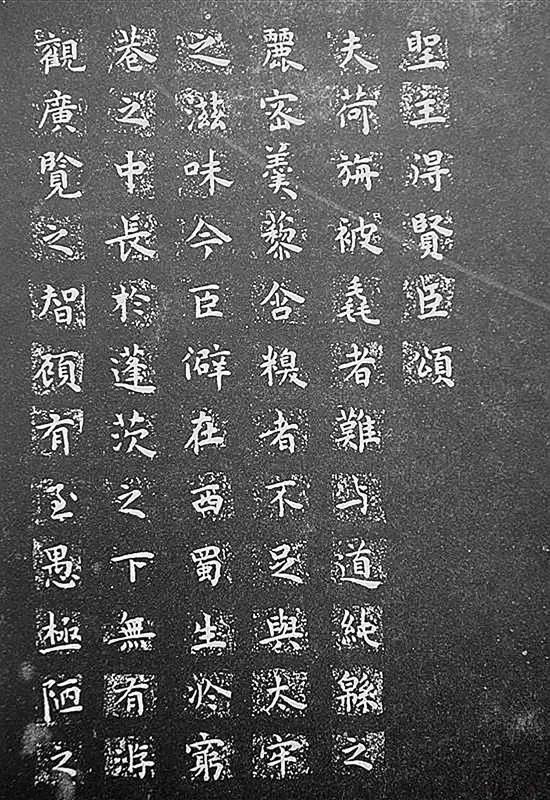 聖主得賢臣頌
夫荷旃被毳者難与道純緜之
麗密羹藜含糗者不足與太牢
之滋味今臣僻在西蜀生於窮
巷之中長於蓬茨之下無有游
觀廣覽之智顧有至愚極陋之